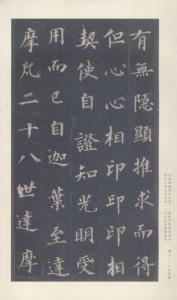 有無隱顯推求而得
但心心相印印印相
契使自證知光明受
用而已自迦葉至達
摩凡二十八世達摩